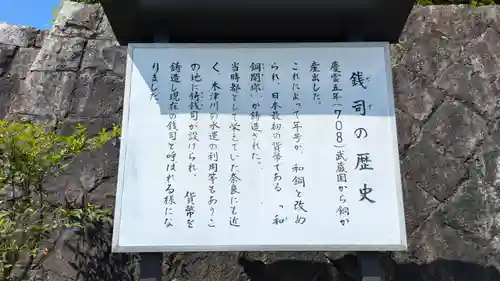 銭司の歴史
慶雲五年(708)武蔵国から銅が
産出した。
これによって年号が、和銅と改め
られ、日本最初の貨幣である 「和
銅開珎」が鋳造された。
当時都として栄えていた奈良にも近
く、木津川の水運の利用等もありこ
の地に鋳銭司が設けられ、貨幣を
鋳造し現在の銭司と呼ばれる様にな
りました。